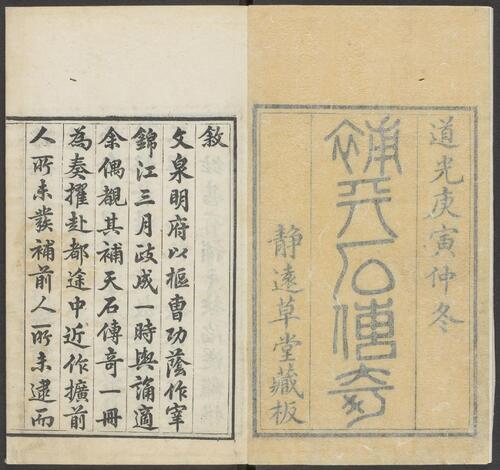 道光庚寅仲冬
補天石傳奇
靜遠草堂藏板
敘
文泉明府以樞曹功蔭作宰
錦江三月政成一時輿論適
余偶覩其補天石傳奇一冊
為奏擢赴都途中近作擴前
人所未發補前人所未逮而